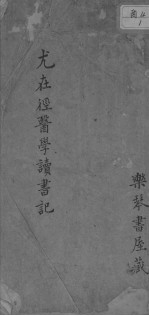 尤在徑醫學讀書記
樂琴書屋藏